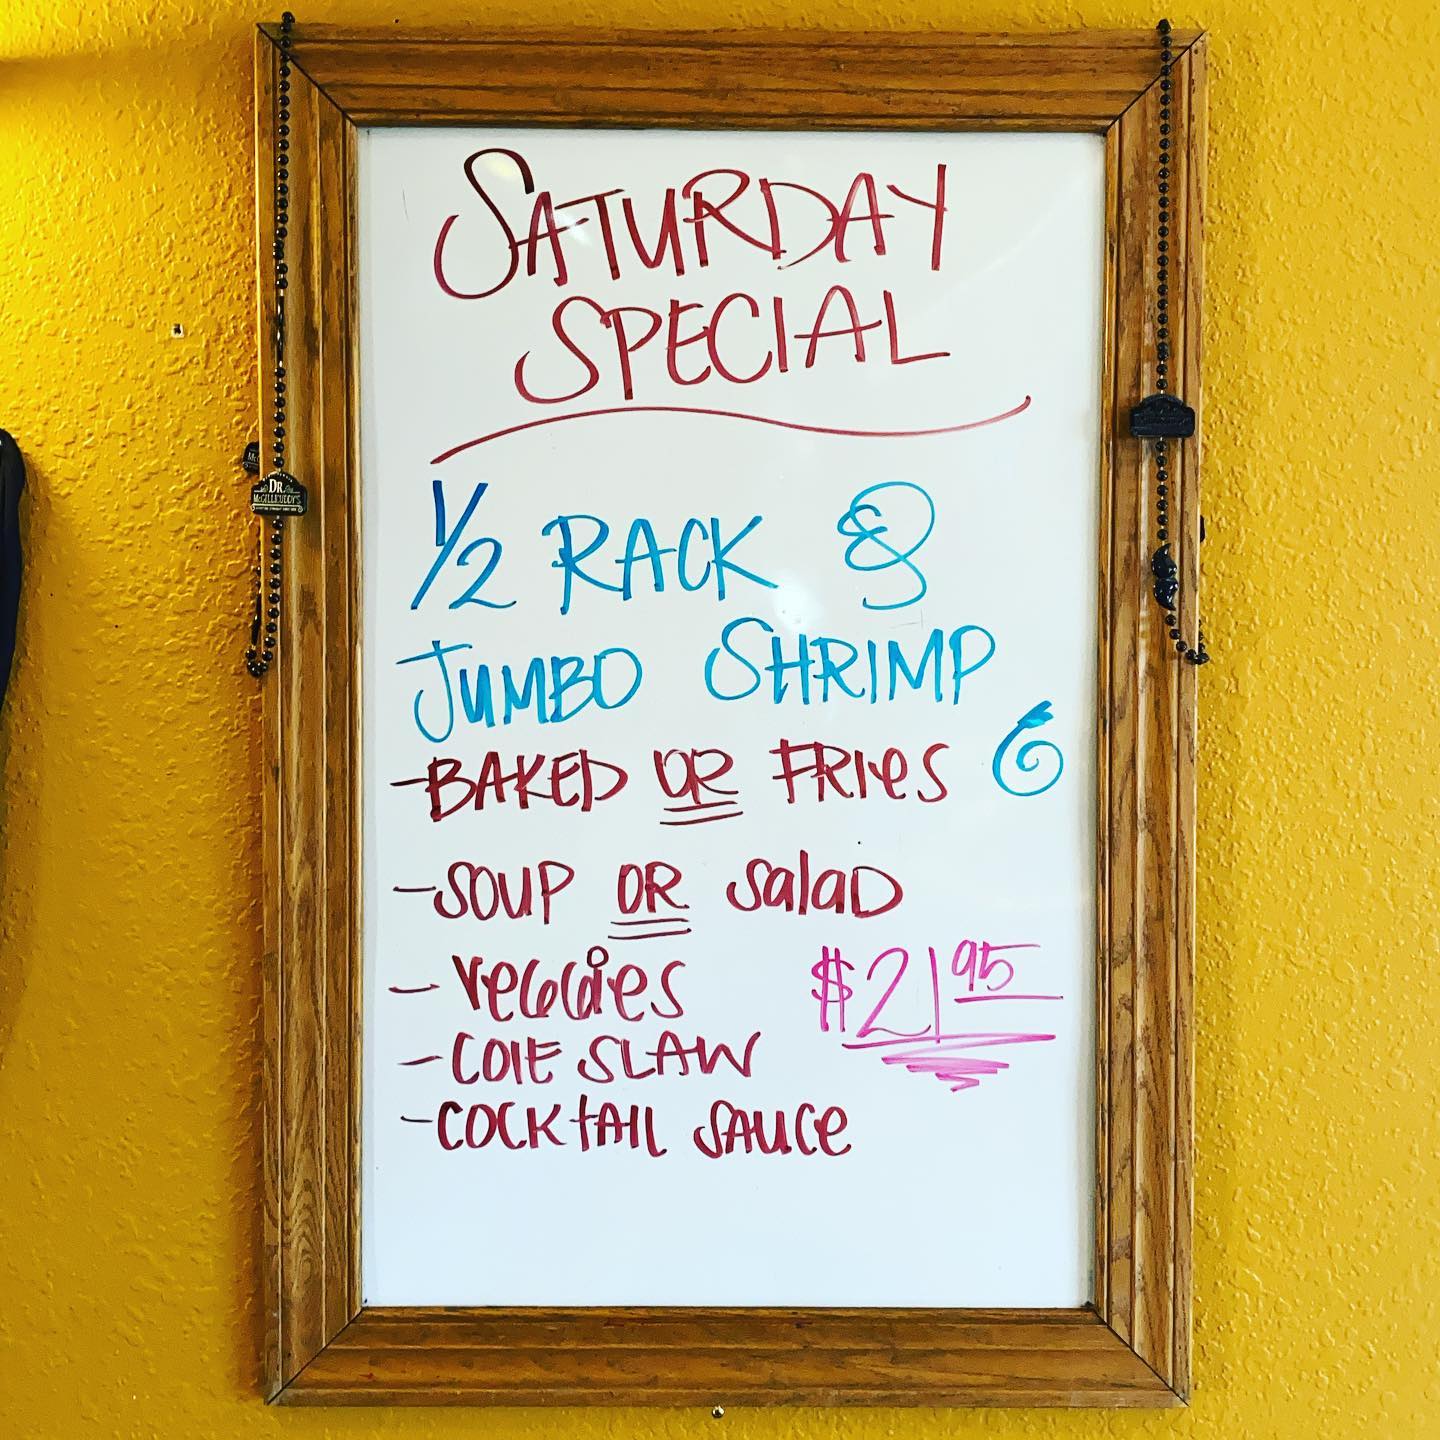 SATURDAY
SPECIAL
1/2 RACK &
JUMBO SHRIMP
- BAKED OR FRIES
- SOUP OR SALAD
- VEGGIES
$21 95
- COLE SLAW
- COCKTAIL SAUCE
DR
McGILLICUDDY'S